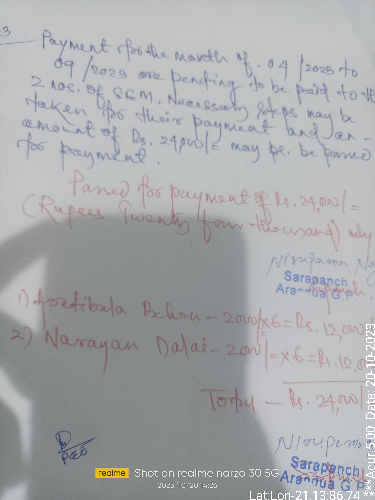 Payment for the month of .04/2023 to
09/2023 are pending to be paid to the
2 nos. of SEM. Necessary steps may be
taken for their payment and an
amount of Rs. 24,000/= may be passed
for payment.
Passed for payment of Rs. 24,000/=
(Rupees Twenty four thousand) only
Sarapanch
Arandua G.P
1) Behera - 2000/x6 = Rs. 12,000
2) Narayan Dalai - 2000/= x6 = Rs. 12,0
Total - Rs. 24,000/
PEO
Sarapanch
Arandua G P
realme Shot on realme narzo 30 5G
2023.10.20 14:23
Lat:Lon-21.13:86.74 *** Acur 5.00 Date: 20-10-2023